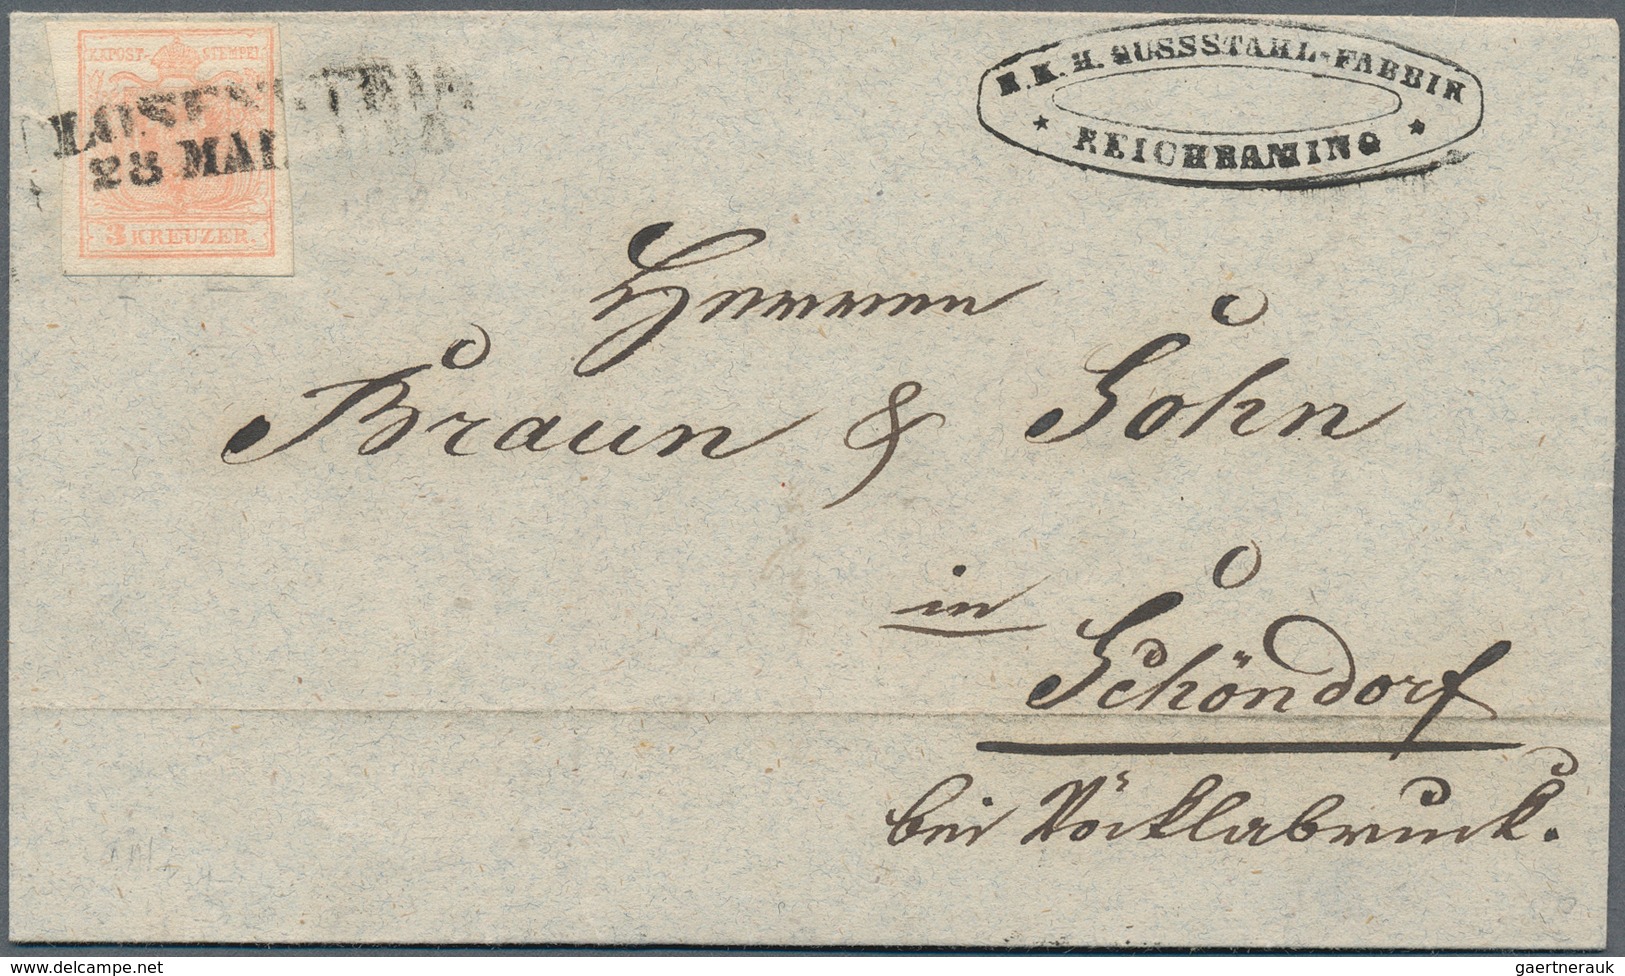 KKPOST-STEMPEL
3 KREUZER.
LOSENSTEIN
28 MAI
K.K.H. GUSSSTAHL-FABRIK
* REICHRAMING *
Herren
Braun & Sohn
in
Schöndorf
bei Vöcklabruck.
www.delcampe.net
gaertnerauk